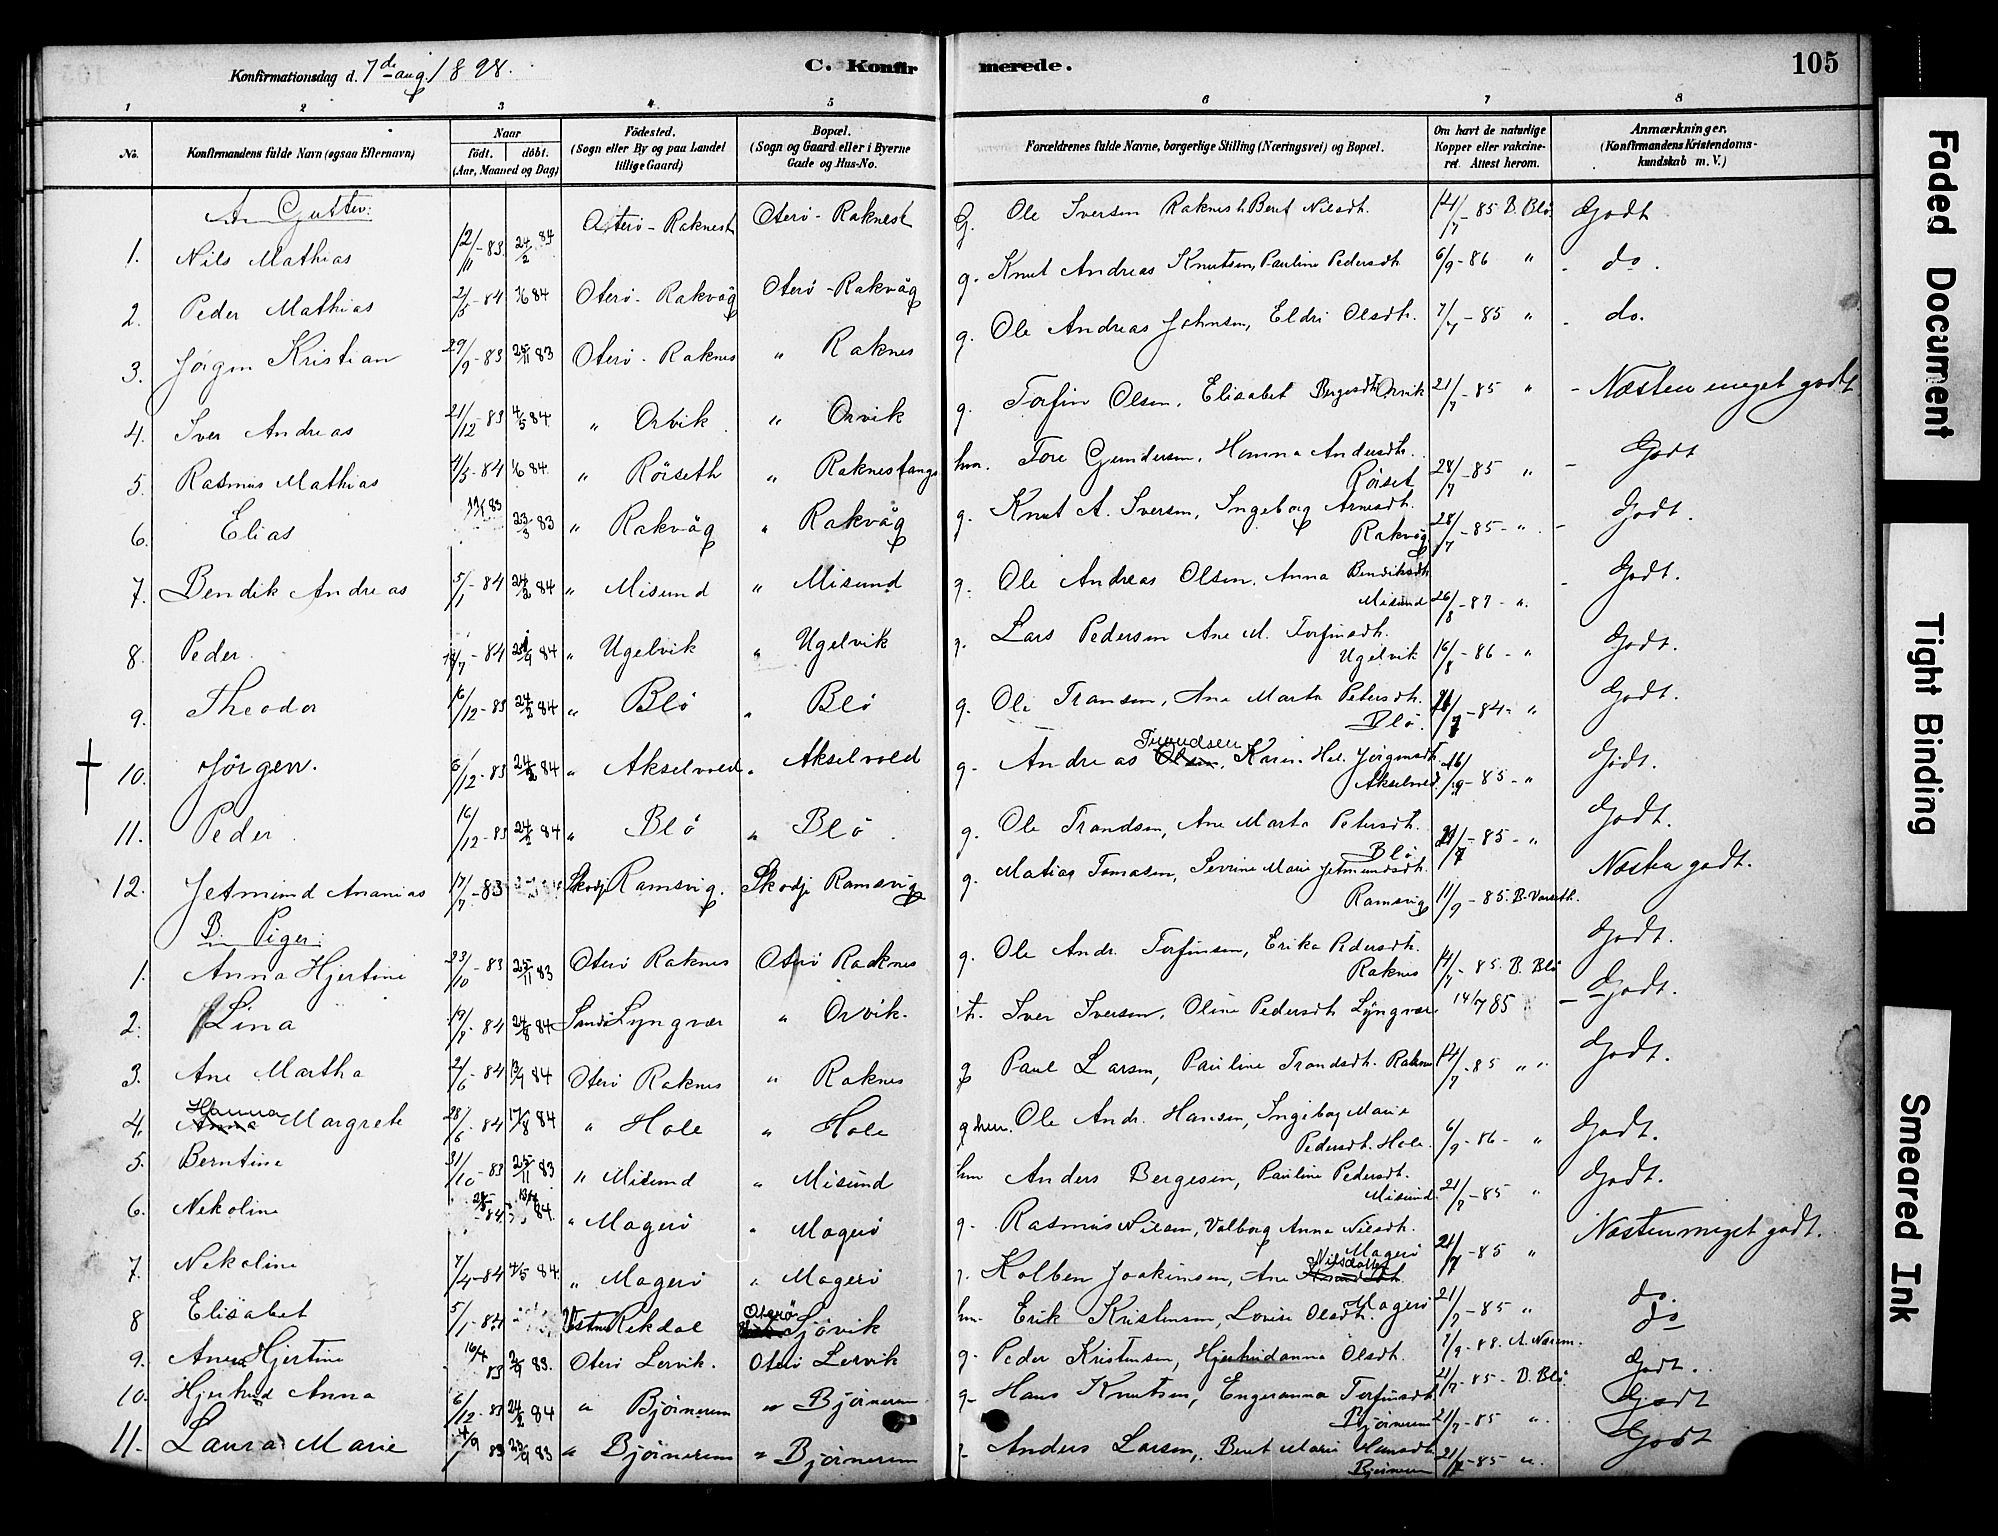 Konfirmationsdag d. 7de aug. 1898.
C. Konfirmerede.
105
1 2 3 4 5 6 7 8
No. Konfirmandens fulde Navn (ogsaa Efternavn) Naar født. døbt. (Aar, Maaned og Dag) Födested. (Sogn eller By og paa Landet tillige Gaard) Bopæl. (Sogn og Gaard eller i Byerne Gade og Hus-No. Forældrenes fulde Navne, borgerlige Stilling (Næringsvei) og Bopæl. Om havt de naturlige Kopper eller vakcineret. Attest herom. Anmærkninger. (Konfirmandens Kristendomskundskab m. V.)
A. Gutter:
1. Nils Mathias 12/11-83 24/2 84 Oterø-Raknest Oterø-Raknest g. Ole Iversen Raknest Beret Nilsdt. 14/7-85 B. Blø Godt
2. Peder Mathias 2/5-84 1/6 84 Oterø-Rakvåg Oterø-Rakvåg g. Knut Andreas Knutsen, Pauline Pedersdt. 6/9-86 " - do.
3. Jørgen Kristian 29/9-83 25/11 83 Oterø-Raknes " Raknes g. Ole Andreas Johnsen, Eldri Olsdt. 7/7-85 " - do.
4. Iver Andreas 21/12-83 4/5 84 " Orvik " Orvik g. Torfin Olsen, Elisabet Bergesdt. Orvik 21/7-85 " - Næsten meget godt
5. Rasmus Mathias 4/5-84 1/6 84 " Röiseth " Raknestange hm. Tore Gundersen, Hanna Andersdt. Röiset 28/7-85 " - Godt
6. Elias 23/3 83 " Rakvåg " Rakvåg g. Knut A. Iversen, Ingeborg Arnesdt. Rakvåg 28/7-85 - " - Godt.
7. Bendik Andreas 5/1-84 24/2 84 " Misund " Misund g. Ole Andreas Olsen, Anna Bendiksdt. Misund 26/8-87 - " - Godt.
8. Peder -84 84 " Ugelvik " Ugelvik g. Lars Pedersen Ane M. Torfinsdt. Ugelvik 16/8-86 - " Godt.
9. Theodor 16/12-83 24/2 84 " Blö " Blö g. Ole Transen, Ane Marta Petersdt. Blö -84- " Godt.
10. Jörgen. 6/12-83 24/2 84 " Akselvold " Akselvold g. Andreas Olsen, Karen Hel. Jörgensdt. Akselvold 16/9-85 - " Godt.
11. Peder 16/12-83 24/2 84 " Blö " Blö g. Ole Trandsen, Ane Marta Petersdt. Blö 21/7-85 - " Godt.
12. Jetmund Ananias 17/7-83 Skodje Ramsvig. Skodje Ramsvig g. Matias Tomasen, Severine Marie Jetmundsdt. Ramsvig 11/9-85. B. Næsten godt.
B. Piger:
1. Anna Hjertine 23/10-83 25/11 83 Oterö Raknes Oterö Raknes g. Ole Andr. Torfinsen, Erika Pedersdt. Raknes 14/7-85. B. Blö Godt.
2. Lina 19/7-84 24/8 84 Lyngvær " Orvik. Iver Iversen, Oline Pedersdt Lyngvær 14/7 85 - Godt.
3. Ane Martha 2/6-84 13/7 84 Oterö Raknes " Raknes g Paul Larsen, Pauline Trandsdt. Raknes 14/7-85 " Godt.
4. Hanna Margrete 28/6-84 17/8 84 " Hole " Hole g hm. Ole Andr. Hansen, Ingeborg Marie Pedersdt. Hole 6/9-86 - " Godt.
5. Berntine 31/10-83 25/11 83 " Misund " Misund hm Anders Bergesen, Pauline Pedersdt. Misund 21/7-85 " Godt.
6. Nekoline -84 84. " Magerö " Magerö g. Rasmus Nilsen, Valborg Anna Nilsdt. Magerö 21/7-85 " Næsten meget godt.
7. Nekoline 7/4-84 4/5 84. " Magerö " Magerö Kolben Joakimsen, Ane Nilsdatter Magerö 21/7-85 " do.
8 Elisabet 5/1-84 Vestnes Rekdal Oterö Sjövik hm. Erik Kristensen, Lovise Olsdt. 7/9-88. A. do
9. Ane Hjertine 16/4 83 83. Oterö Lervik. Oterö Lervik g. Peder Kristensen, Hjertrudanna Olsdt. 21/7-85 - B. Blö Godt.
10. Hjertrud Anna 6/12-83 24/2 84 " Björnerem " Björnerem g. Hans Knutsen, Engeranna Torfinsdt. Björnerem 21/7-85 " Godt
11. Laura Marie 83 23/9 83 " Björnerem " Björnerem Anders Larsen, Beret Marie Hansdt. Björnerem 21/7-85 " Godt
Faded Document
Tight Binding
Smeared Ink